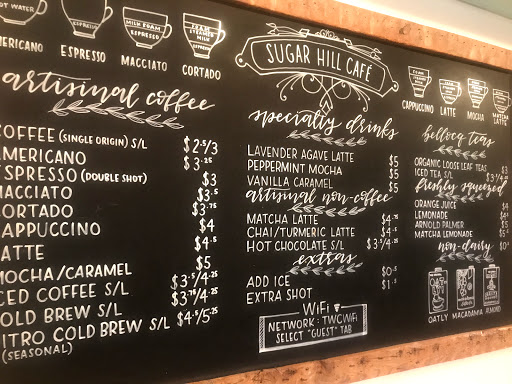 HOT WATER
ESPRESSO
AMERICANO
ESPRESSO
MILK FOAM
ESPRESSO
MACCIATO
FOAM
STEAMED
MILK
ESPRESSO
CORTADO
artisinal coffee
COFFEE (SINGLE ORIGIN) S/L $2.5/3
AMERICANO $3.25
ESPRESSO (DOUBLE SHOT) $3
MACCIATO $3.5
CORTADO $3.75
CAPPUCCINO $4
LATTE $4.5
MOCHA/CARAMEL $5
ICED COFFEE S/L $3.5/4.25
COLD BREW S/L $3.75/4.25
NITRO COLD BREW S/L $4.5/5.25
(SEASONAL)
SUGAR HILL CAFÉ
specialty drinks
LAVENDER AGAVE LATTE $5
PEPPERMINT MOCHA $5
VANILLA CARAMEL $5
artisinal non-coffee
MATCHA LATTE $4.25
CHAI/TURMERIC LATTE $4.5
HOT CHOCOLATE S/L $3.5/4.25
extras
ADD ICE $0.5
EXTRA SHOT $1.5
WiFi
NETWORK: TWCWiFi
SELECT "GUEST" TAB
CAPPUCCINO
LATTE
MOCHA
MATCHA
LATTE
bellocq teas
ORGANIC LOOSE LEAF TEAS $3
ICED TEA S/L $3.5/4
freshly squeezed
ORANGE JUICE $4
LEMONADE $4
ARNOLD PALMER $5
MATCHA LEMONADE
non-dairy
OATLY
MACADAMIA
ALMOND